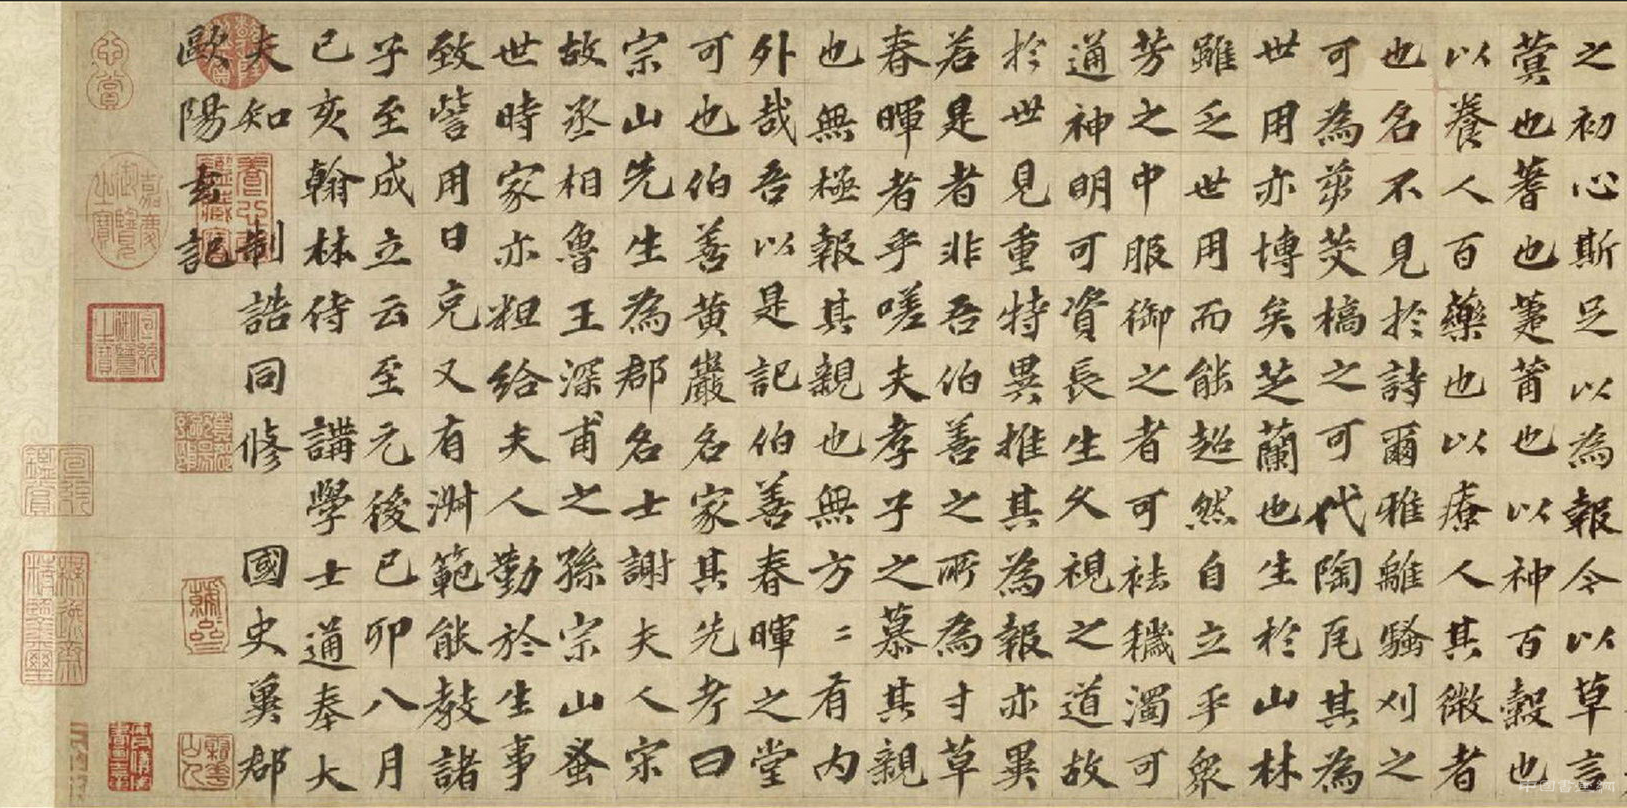 之初心斯足以為報今以草言
蓂也蓍也萐莆也以神百穀也
以養人百藥也以療人其微者
也名不見於詩爾雅離騷刈之
可為茭槁之可代陶瓦其為
世用亦博矣芝蘭也生於山林
雖乏世用而能超然自立乎衆
芳之中服御之者可袪穢濁可
通神明可資長生久視之道故
於世見重特異推其為報亦異
若是者非吾伯善之所為寸草
春暉者乎嗟夫孝子之慕其親
也無極報其親也無方二有內
外哉吾以是記伯善春暉之堂
可也伯善黃巖名家其先考曰
宗山先生為郡名士謝夫人宗
故丞相魯王深甫之孫宗山蚤
世時家亦粗給夫人勤於生事
致訾用日充又有淑範能教諸
子至成立云至元後己卯八月
己亥翰林侍講學士通奉大
夫知制誥同修國史冀郡
歐陽玄記